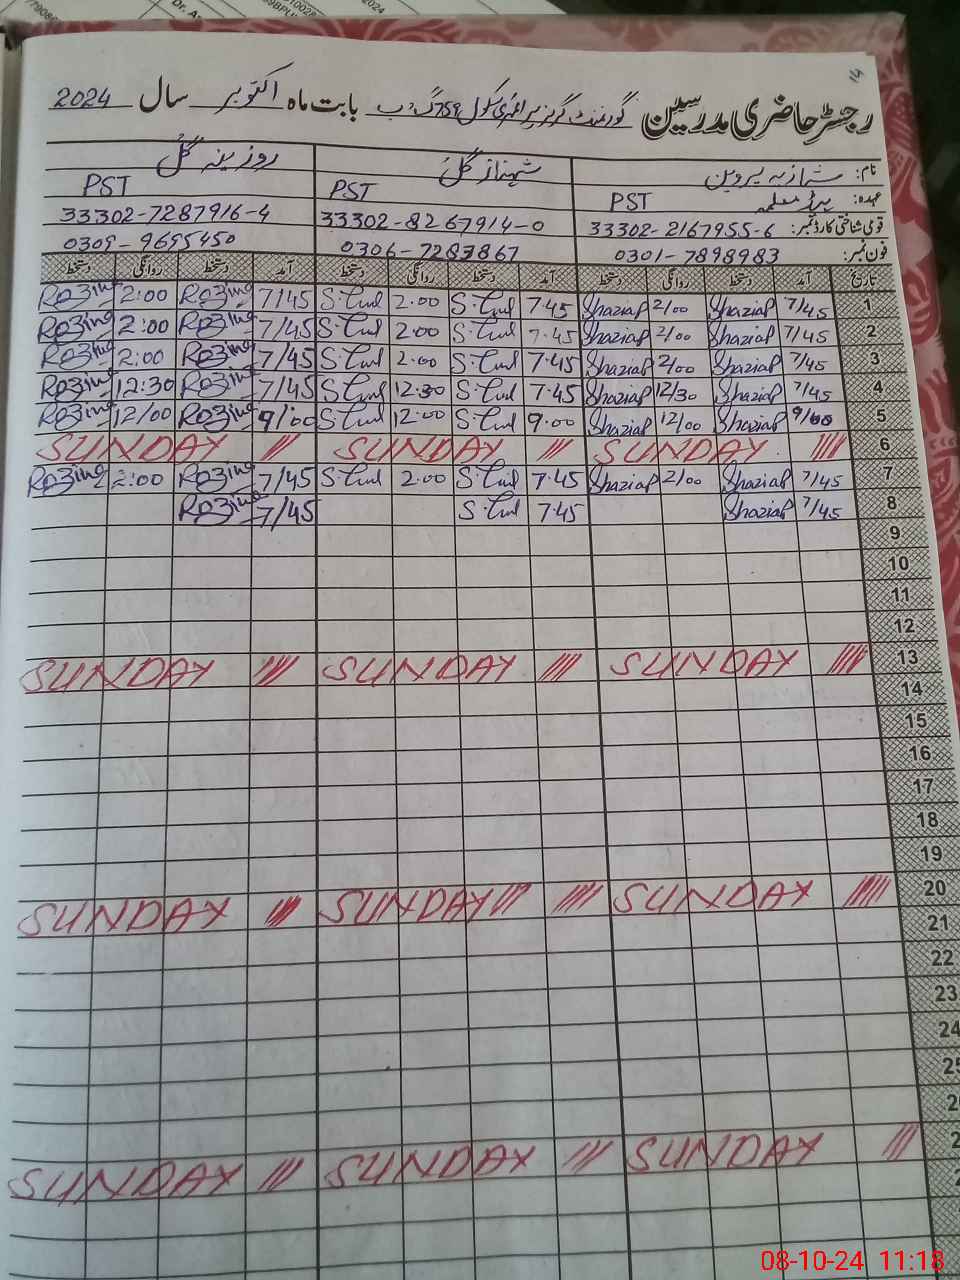 14
رجسٹر حاضری مدرسین گورنمنٹ گرلز پرائمری سکول 759 گ ب بابت ماہ اکتوبر سال 2024
نام: شازیہ پروین شہناز گل روزینہ گل
عہدہ: PST PST PST
قومی شناختی کارڈ نمبر: 33302-2167955-6 33302-8267914-0 33302-7287916-4
فون نمبر: 0301-7898983 0306-7287867 0309-9695450
تاریخ آمد دستخط روانگی دستخط آمد دستخط روانگی دستخط آمد دستخط روانگی دستخط
1 7/45 Shaziap 2/00 Shaziap 7.45 S.Gul 2.00 S.Gul 7/45 Rozina 2:00 Rozina
2 7/45 Shaziap 2/00 Shaziap 7.45 S.Gul 2.00 S.Gul 7/45 Rozina 2:00 Rozina
3 7/45 Shaziap 2/00 Shaziap 7.45 S.Gul 2.00 S.Gul 7/45 Rozina 2:00 Rozina
4 7/45 Shaziap 12/30 Shaziap 7.45 S.Gul 12.30 S.Gul 7/45 Rozina 12:30 Rozina
5 9/00 Shaziap 12/00 Shaziap 9.00 S.Gul 12.00 S.Gul 9/00 Rozina 12/00 Rozina
6 SUNDAY SUNDAY SUNDAY
7 7/45 Shaziap 2/00 Shaziap 7.45 S.Gul 2.00 S.Gul 7/45 Rozina 2:00 Rozina
8 7/45 Shaziap 7.45 S.Gul 7/45 Rozina
9
10
11
12
13 SUNDAY SUNDAY SUNDAY
14
15
16
17
18
19
20 SUNDAY SUNDAY SUNDAY
21
22
23
24
SUNDAY SUNDAY SUNDAY
08-10-24 11:18